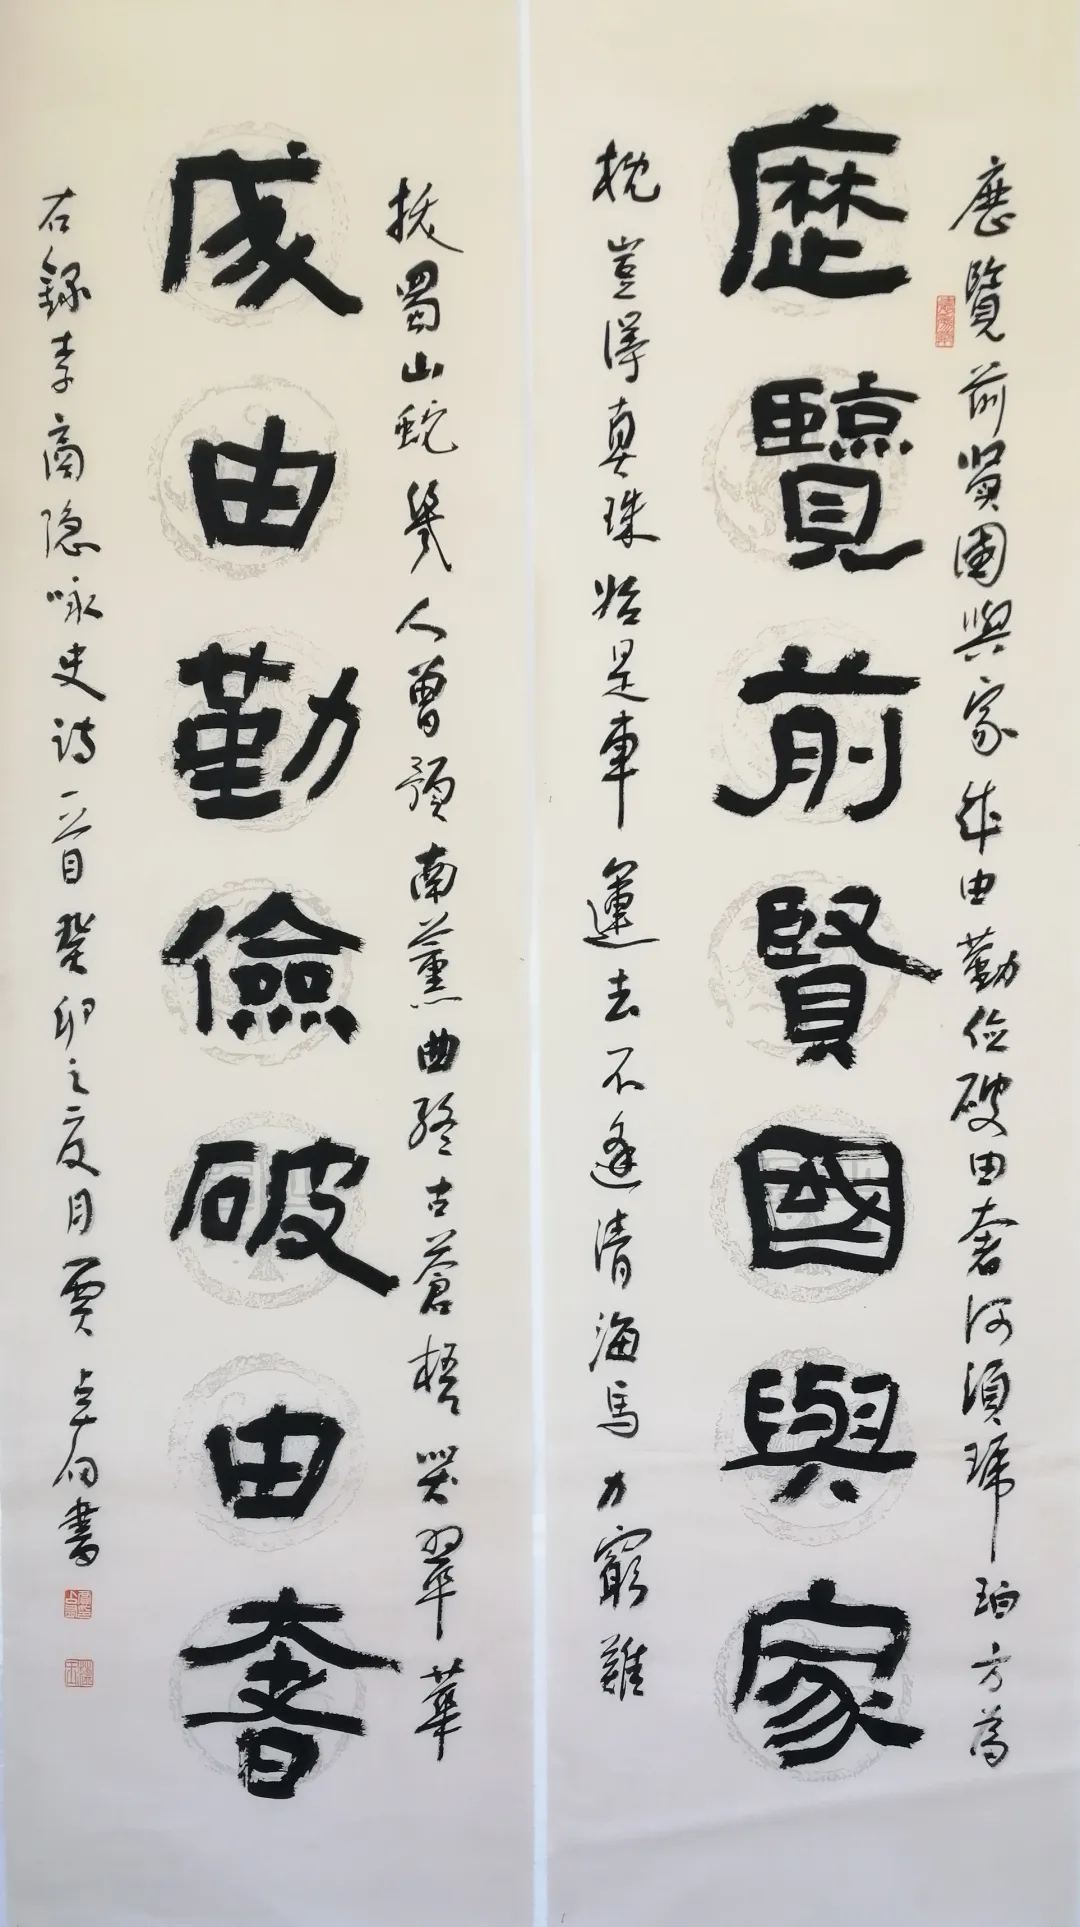 歷覽前賢國與家成由勤俭破由奢何須琥珀方為
歷覽前賢國與家
枕豈得真珠始是車運去不逢清海馬力窮難
拔蜀山蛇幾人曾預南薰曲終古蒼梧哭翠華
成由勤儉破由奢
右録李商隐咏史詩一首癸卯之夏月賈書